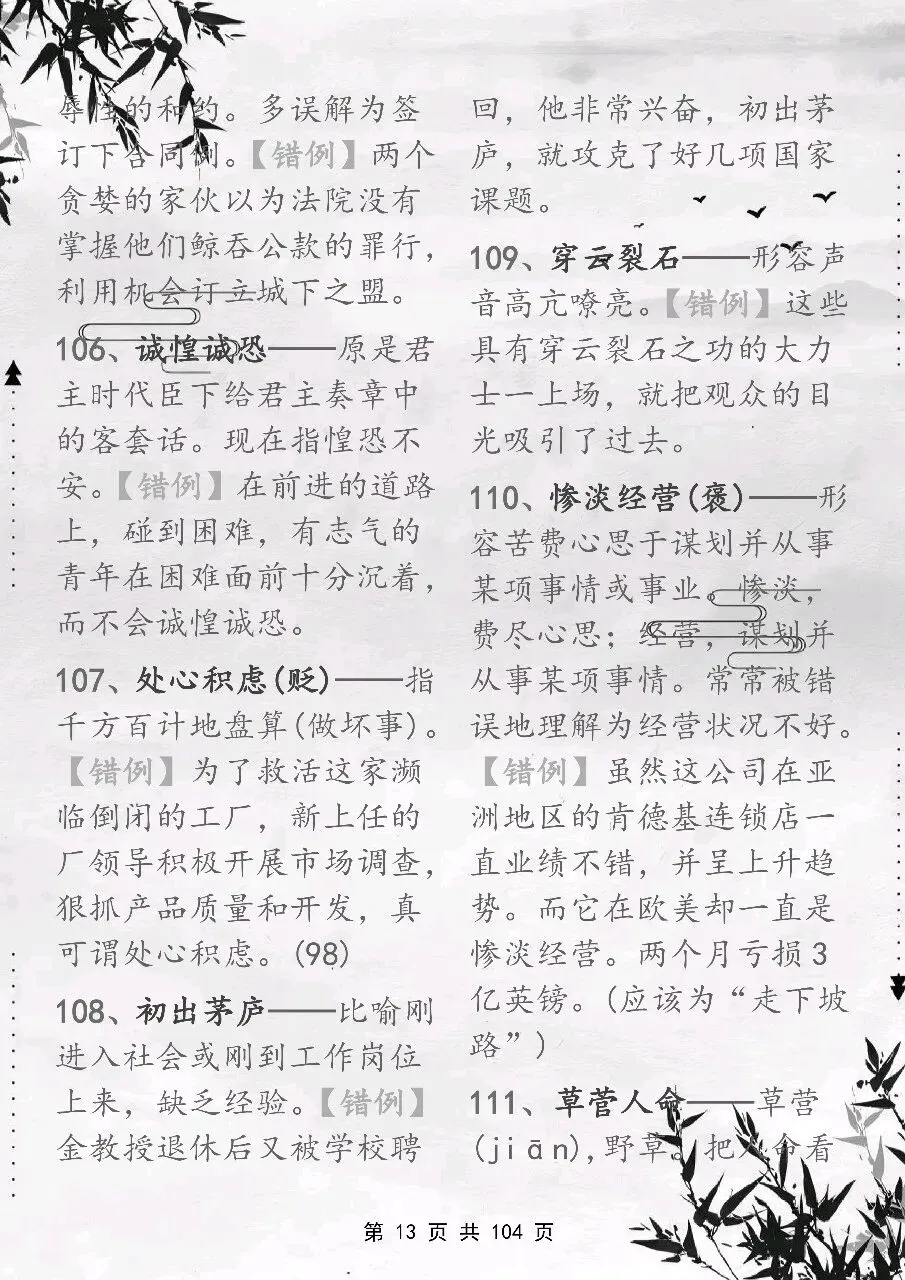 辱性的和约。多误解为签
订下合同例。【错例】两个
贪婪的家伙以为法院没有
掌握他们鲸吞公款的罪行，
利用机会订立城下之盟。
106、诚惶诚恐——原是君
主时代臣下给君主奏章中
的客套话。现在指惶恐不
安。【错例】在前进的道路
上，碰到困难，有志气的
青年在困难面前十分沉着，
而不会诚惶诚恐。
107、处心积虑(贬)——指
千方百计地盘算(做坏事)。
【错例】为了救活这家濒
临倒闭的工厂，新上任的
厂领导积极开展市场调查，
狠抓产品质量和开发，真
可谓处心积虑。(98)
108、初出茅庐——比喻刚
进入社会或刚到工作岗位
上来，缺乏经验。【错例】
金教授退休后又被学校聘
回，他非常兴奋，初出茅
庐，就攻克了好几项国家
课题。
109、穿云裂石——形容声
音高亢嘹亮。【错例】这些
具有穿云裂石之功的大力
士一上场，就把观众的目
光吸引了过去。
110、惨淡经营(褒)——形
容苦费心思于谋划并从事
某项事情或事业。惨淡，
费尽心思；经营，谋划并
从事某项事情。常常被错
误地理解为经营状况不好。
【错例】虽然这公司在亚
洲地区的肯德基连锁店一
直业绩不错，并呈上升趋
势。而它在欧美却一直是
惨淡经营。两个月亏损3
亿英镑。(应该为“走下坡
路”)
111、草菅人命——草营
(jiān),野草。把人命看
第 13 页 共 104 页